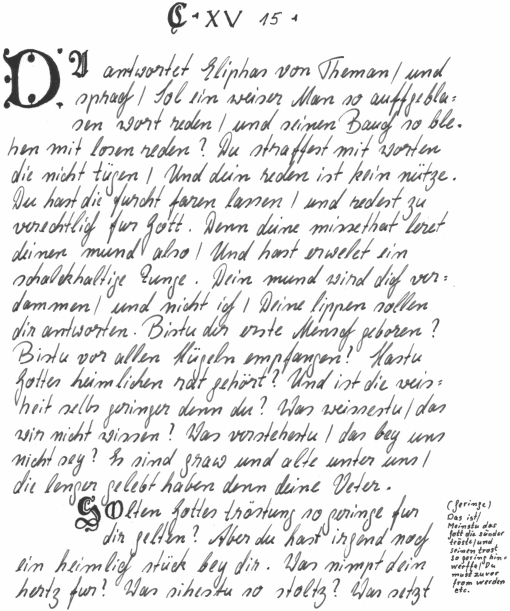 C · XV 15 ·
DA antwortet Eliphas von Theman / und
sprach / Sol ein weiser Man so auffgebla=
sen wort reden / und seinen Bauch so ble=
hen mit losen reden ? Du straffest mit worten
die nicht tügen / Und dein reden ist kein nütze.
Du hast die furcht faren lassen / und redest zu
verechtlich fur Gott. Denn deine missethat leret
deinen mund also / Und hast erwelet ein
schalckhaltige zunge. Dein mund wird dich ver=
dammen / und nicht ich / Deine lippen sollen
dir antworten. Bistu der erste Mensch geboren ?
Bistu vor allen Hügeln empfangen? Hastu
Gottes heimlichen rat gehört? Und ist die weis=
heit selbs geringer denn du? Was weissestu / das
wir nicht wissen ? Was verstehestu / das bey uns
nicht sey? Es sind graw und alte unter uns /
die lenger gelebt haben denn deine Veter.
SOlten Gottes tröstung so geringe fur
dir gelten? Aber du hast irgend noch
ein heimlich stück bey dir. Was nimpt dein
hertz fur? Was sihestu so stoltz? Was setzt
(Geringe)
Das ist /
Meinstu das
Gott die sünder
tröste / und
seinen trost
so gering hin=
werffe / Du
must zuvor
from werden
etc.